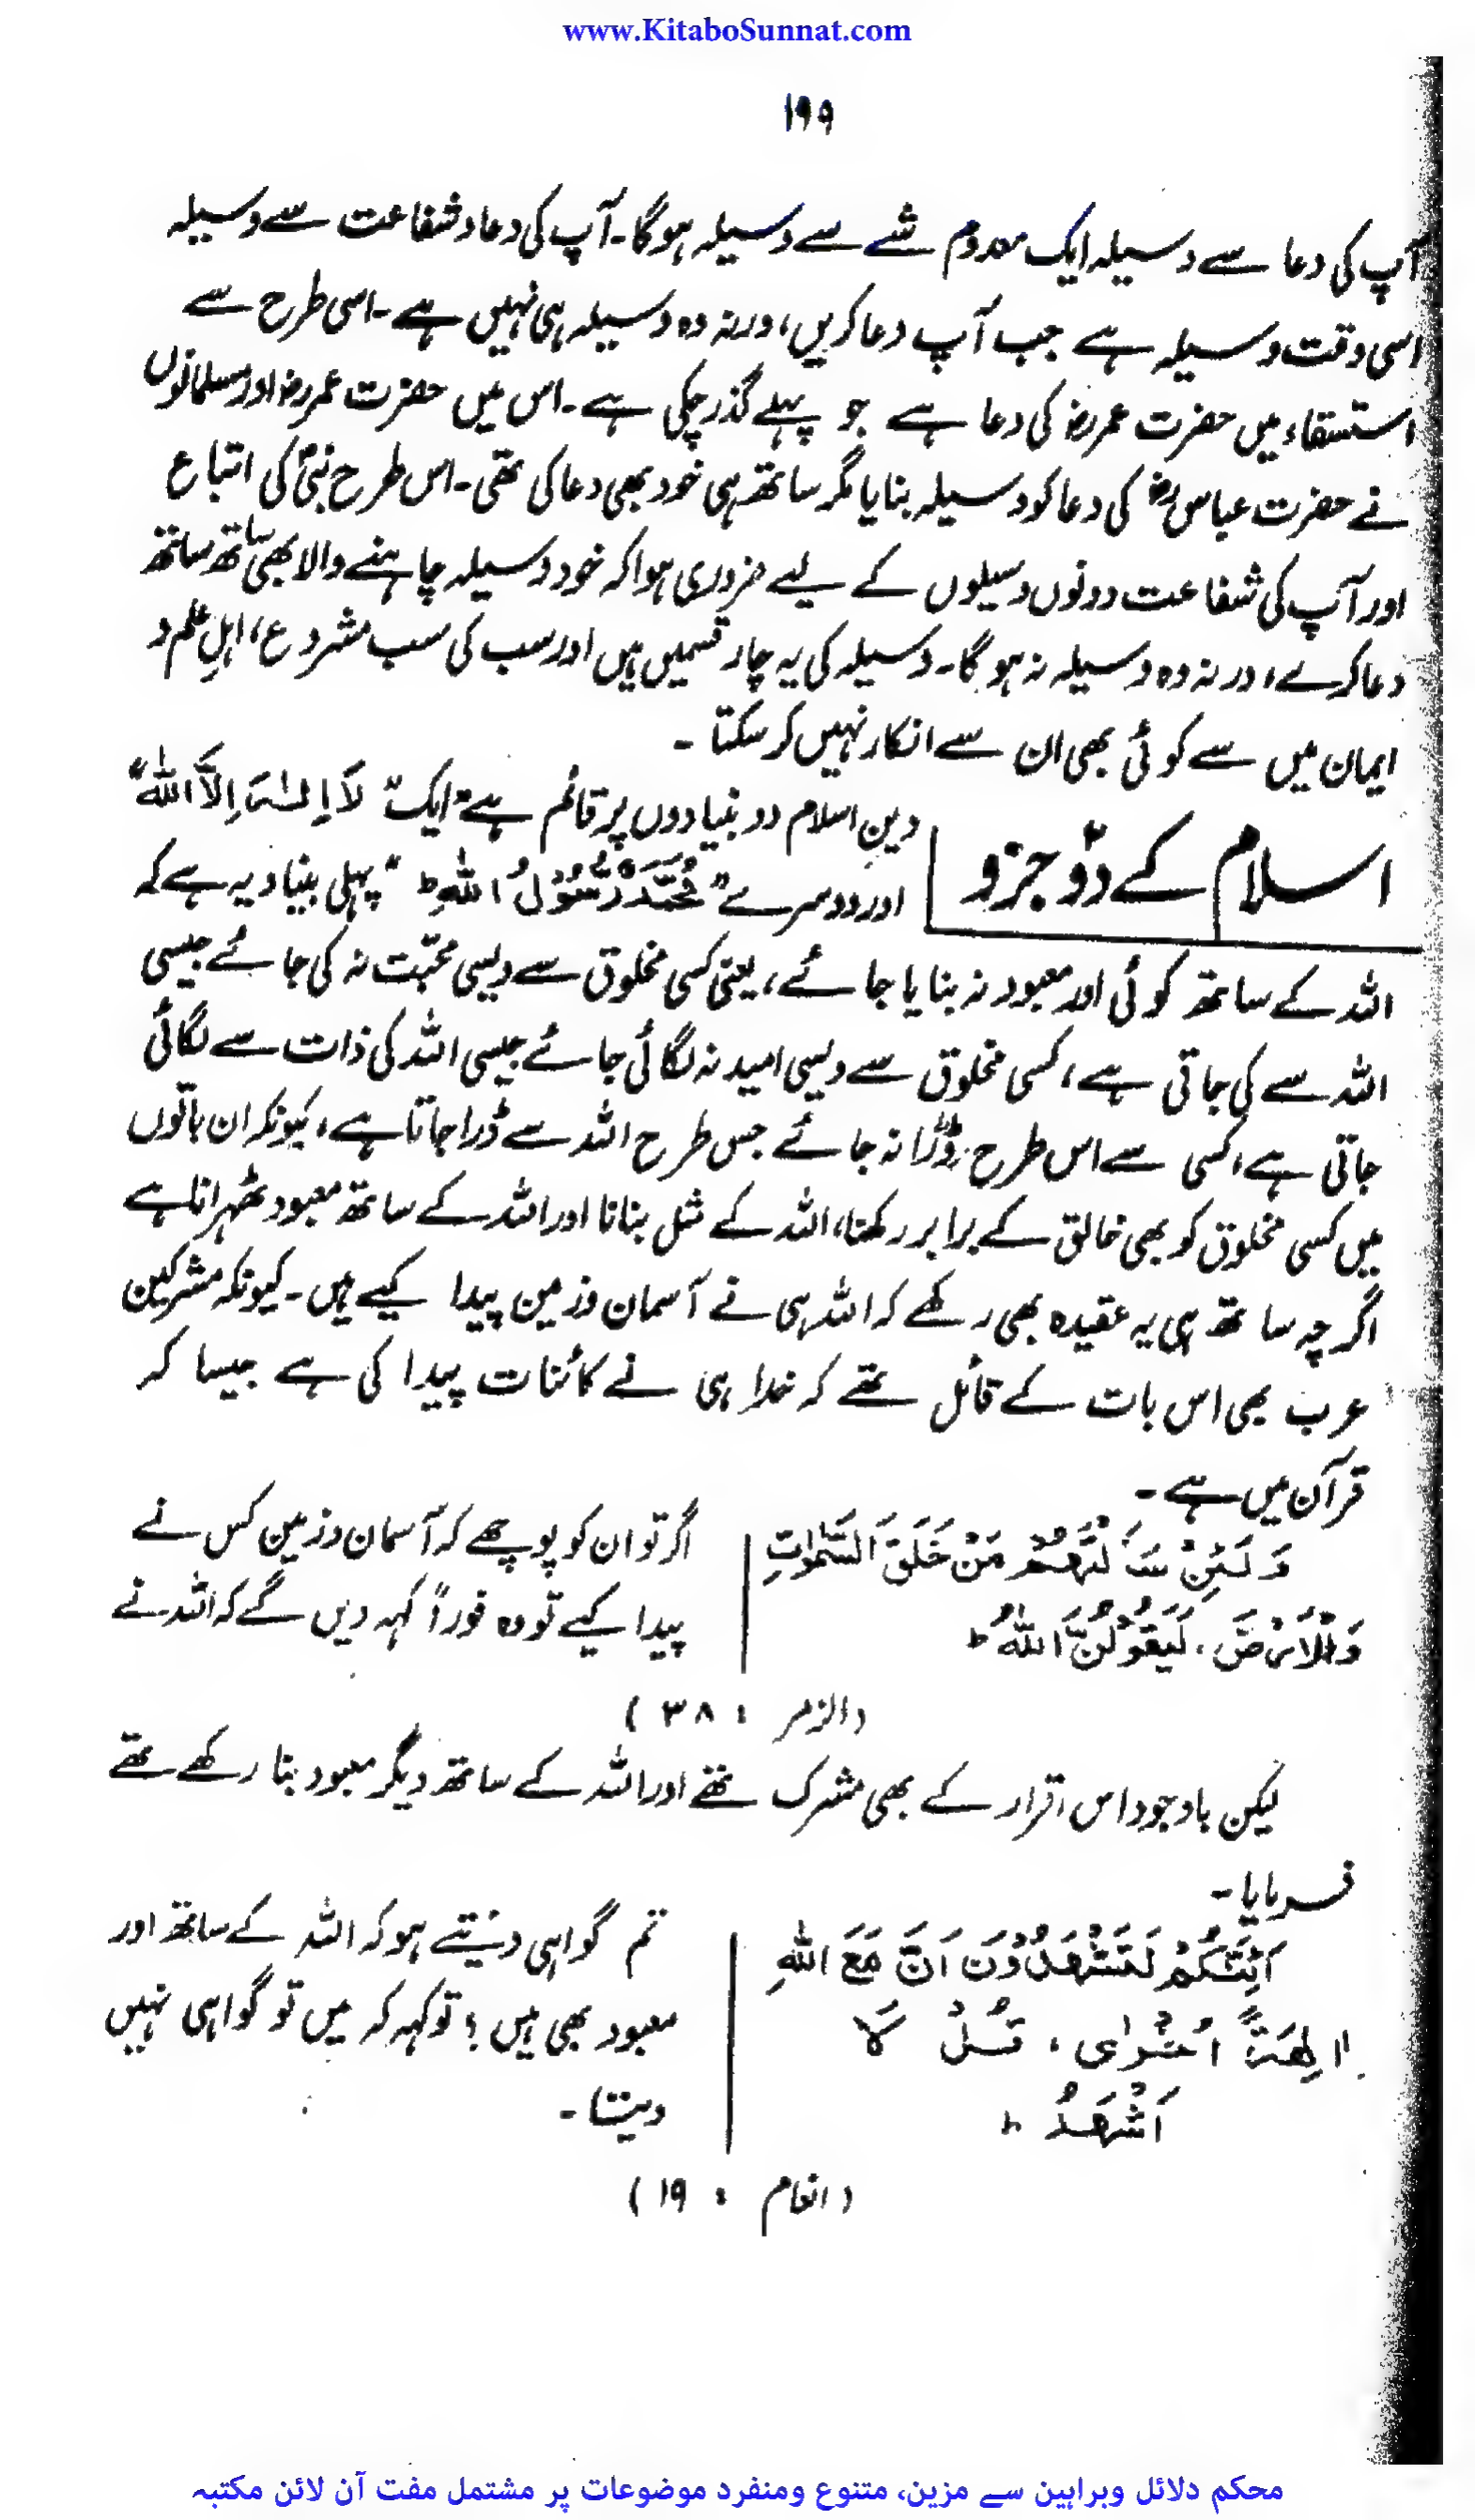 www.KitaboSunnat.com
۱۹۹
آپ کی دعا سے وسیلہ ایک معدوم شے سے وسیلہ ہوگا۔ آپ کی دعا و شفاعت سے وسیلہ
اسی وقت وسیلہ ہے جب آپ دعا کریں، ورنہ وہ وسیلہ ہی نہیں ہے۔ اسی طرح سے
استسقاء میں حضرت عمرؓ کی دعا ہے جو پہلے گذر چکی ہے۔ اس میں حضرت عمرؓ اور مسلمانوں
نے حضرت عباسؓ کی دعا کو وسیلہ بنایا مگر ساتھ ہی خود بھی دعا کی تھی۔ اس طرح نبیؐ کی اتباع
اور آپ کی شفاعت دونوں وسیلوں کے لیے ضروری ہوا کہ خود وسیلہ چاہنے والا بھی ساتھ ساتھ
دعا کرے، ورنہ وہ وسیلہ نہ ہوگا۔ وسیلہ کی یہ چار قسمیں ہیں اور سب کی سب مشروع، اہلِ علم و
ایمان میں سے کوئی بھی ان سے انکار نہیں کر سکتا۔
اسلام کے دّو جزو
دینِ اسلام دو بنیادوں پر قائم ہے "ایک" لَا اِلٰہَ اِلَّا اللّٰہُ"
اور دوسرے "مُحَمَّدٌ رَّسُوْلُ اللّٰہِ ط" پہلی بنیاد یہ ہے کہ
اللہ کے ساتھ کوئی اور معبود نہ بنایا جائے، یعنی کسی مخلوق سے ویسی محبّت نہ کی جائے جیسی
اللہ سے کی جاتی ہے، کسی مخلوق سے ویسی امید نہ لگائی جائے جیسی اللہ کی ذات سے لگائی
جاتی ہے، کسی سے اس طرح ڈرا نہ جائے جس طرح اللہ سے ڈرا جاتا ہے، کیونکہ ان باتوں
میں کسی مخلوق کو بھی خالق کے برابر رکھنا، اللہ کے مثل بنانا اور اللہ کے ساتھ معبود ٹھہرانا ہے
اگرچہ ساتھ ہی یہ عقیدہ بھی رکھے کہ اللہ ہی نے آسمان و زمین پیدا کیے ہیں۔ کیونکہ مشرکین
عرب بھی اس بات کے قائل تھے کہ خدا ہی نے کائنات پیدا کی ہے جیسا کہ
قرآن میں ہے۔
وَلَئِنْ سَاَلْتَھُمْ مَنْ خَلَقَ السَّمٰوٰتِ
وَالْاَرْضَ، لَیَقُوْلُنَّ اللّٰہُ ط
اگر تو ان کو پوچھے کہ آسمان و زمین کس نے
پیدا کیے تو وہ فوراً کہہ دیں گے کہ اللہ نے
(الزمر : ۳۸)
لیکن باوجود اس اقرار کے بھی مشرک تھے اور اللہ کے ساتھ دیگر معبود بنا رکھے تھے
فرمایا۔
اَئِنَّکُمْ لَتَشْھَدُوْنَ اَنَّ مَعَ اللّٰہِ
اٰلِھَۃً اُخْرٰی، قُلْ لَا
اَشْھَدُ ط
تم گواہی دیتے ہو کہ اللہ کے ساتھ اور
معبود بھی ہیں؟ تو کہہ کہ میں تو گواہی نہیں
دیتا۔
(انعام : ۱۹)
محکم دلائل وبراہین سے مزین، متنوع ومنفرد موضوعات پر مشتمل مفت آن لائن مکتبہ